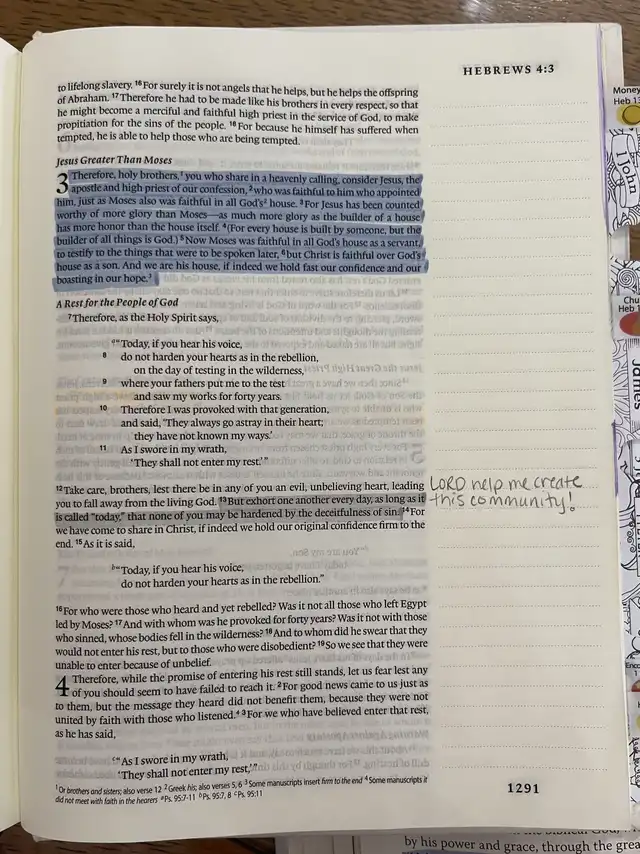 HEBREWS 4:3
to lifelong slavery. 16 For surely it is not angels that he helps, but he helps the offspring
of Abraham. 17 Therefore he had to be made like his brothers in every respect, so that
he might become a merciful and faithful high priest in the service of God, to make
propitiation for the sins of the people. 18 For because he himself has suffered when
tempted, he is able to help those who are being tempted.
Jesus Greater Than Moses
3 Therefore, holy brothers,1 you who share in a heavenly calling, consider Jesus, the
apostle and high priest of our confession, 2 who was faithful to him who appointed
him, just as Moses also was faithful in all God's2 house. 3 For Jesus has been counted
worthy of more glory than Moses—as much more glory as the builder of a house
has more honor than the house itself. 4 (For every house is built by someone, but the
builder of all things is God.) 5 Now Moses was faithful in all God's house as a servant,
to testify to the things that were to be spoken later, 6 but Christ is faithful over God's
house as a son. And we are his house, if indeed we hold fast our confidence and our
boasting in our hope.3
A Rest for the People of God
7 Therefore, as the Holy Spirit says,
a "Today, if you hear his voice,
8 do not harden your hearts as in the rebellion,
on the day of testing in the wilderness,
9 where your fathers put me to the test
and saw my works for forty years.
10 Therefore I was provoked with that generation,
and said, 'They always go astray in their heart;
they have not known my ways.'
11 As I swore in my wrath,
'They shall not enter my rest.'"
12 Take care, brothers, lest there be in any of you an evil, unbelieving heart, leading
you to fall away from the living God. 13 But exhort one another every day, as long as it
is called "today," that none of you may be hardened by the deceitfulness of sin. 14 For
we have come to share in Christ, if indeed we hold our original confidence firm to the
end. 15 As it is said,
LORD help me create
this community!
b "Today, if you hear his voice,
do not harden your hearts as in the rebellion."
16 For who were those who heard and yet rebelled? Was it not all those who left Egypt
led by Moses? 17 And with whom was he provoked for forty years? Was it not with those
who sinned, whose bodies fell in the wilderness? 18 And to whom did he swear that they
would not enter his rest, but to those who were disobedient? 19 So we see that they were
unable to enter because of unbelief.
4 Therefore, while the promise of entering his rest still stands, let us fear lest any
of you should seem to have failed to reach it. 2 For good news came to us just as
to them, but the message they heard did not benefit them, because they were not
united by faith with those who listened.4 3 For we who have believed enter that rest,
as he has said,
c "As I swore in my wrath,
'They shall not enter my rest,'"
1 Or brothers and sisters; also verse 12 2 Greek his; also verses 5, 6 3 Some manuscripts insert firm to the end 4 Some manuscripts it
did not meet with faith in the hearers a Ps. 95:7-11 b Ps. 95:7, 8 c Ps. 95:11
1291
Money
Heb 13
1 John
Chu
Heb 1
James
by his power and grace, through the grea